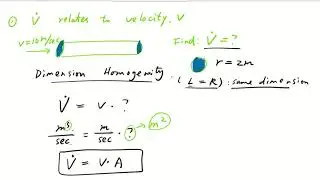 ① V̇ relates to velocity, v
v=10m/sec
Find: V̇ = ?
r = 2m
Dimension Homogeneity
(L = R): same dimension
V̇ = v · ?
m³/sec = m/sec · ? → m²
V̇ = v · A